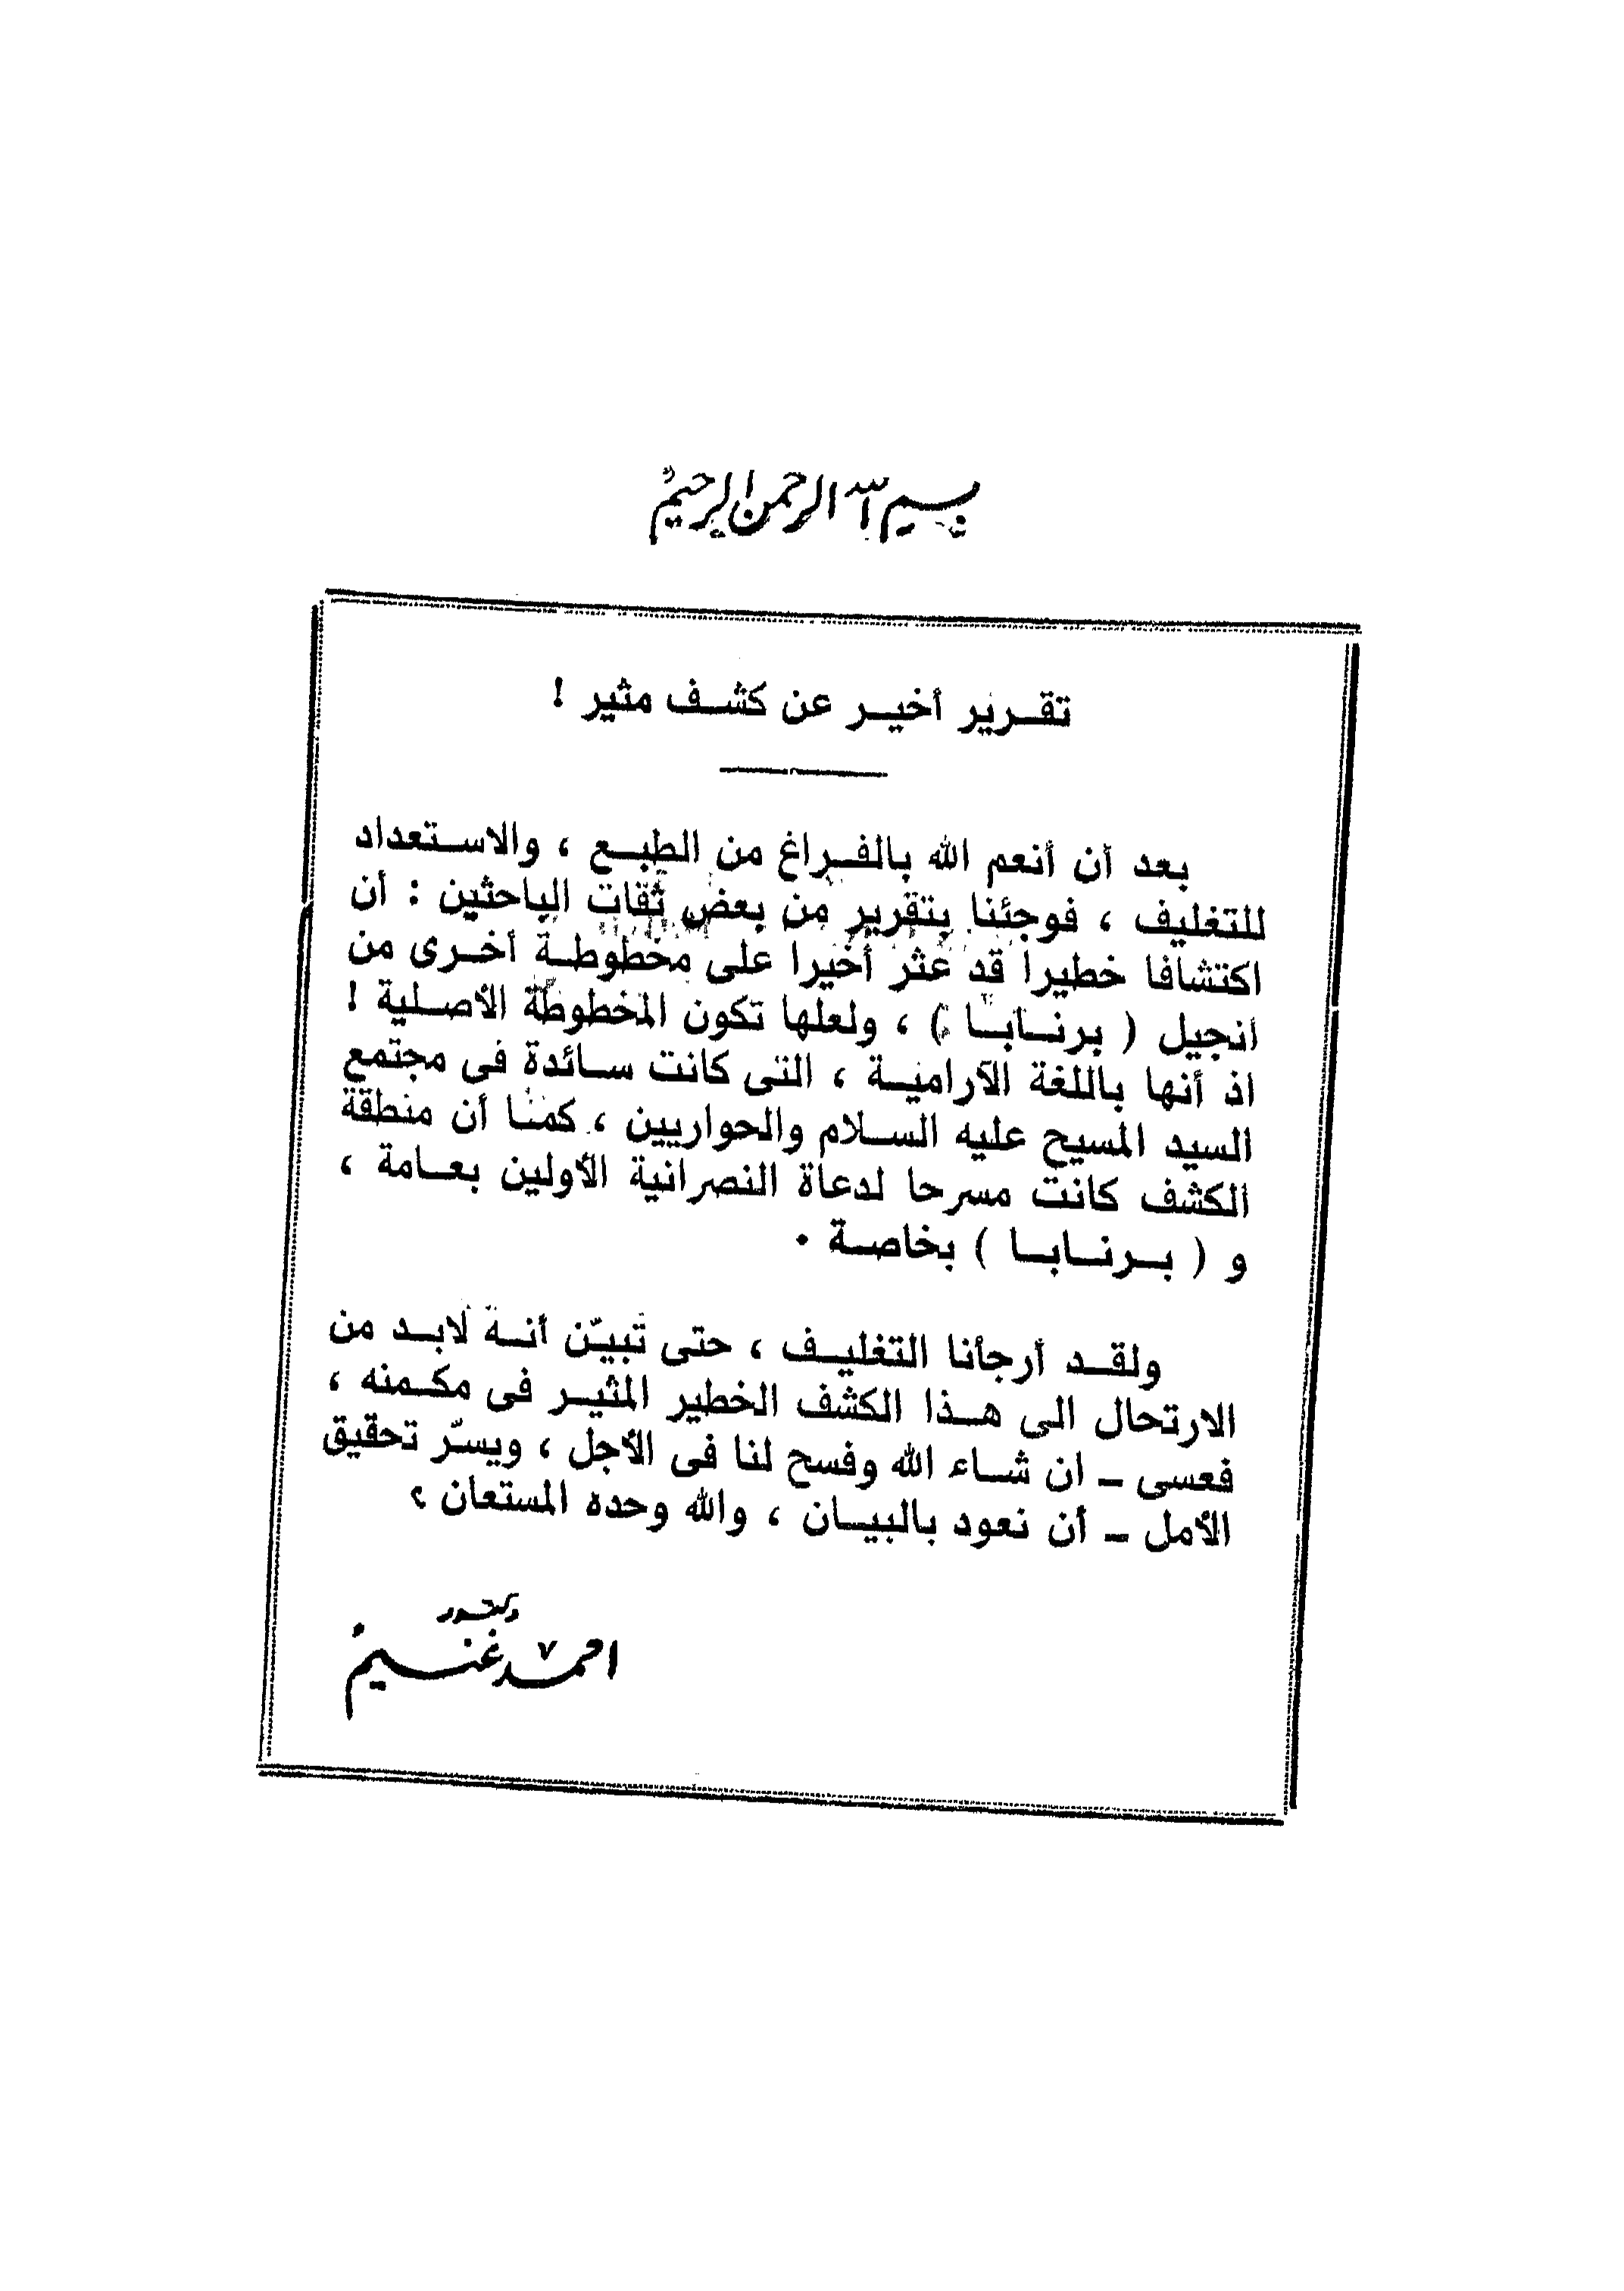 بسم الله الرحمن الرحيم
تقرير أخير عن كشف مثير !
بعد أن أنعم الله بالفراغ من الطبع ، والاستعداد
للتغليف ، فوجئنا بتقرير من بعض ثقات الباحثين : أن
اكتشافا خطيرا قد عثر أخيرا على مخطوطة أخرى من
انجيل ( برنابا ) ، ولعلها تكون المخطوطة الأصلية !
اذ أنها باللغة الآرامية ، التى كانت سائدة فى مجتمع
السيد المسيح عليه السلام والحواريين ، كما أن منطقة
الكشف كانت مسرحا لدعاة النصرانية الأولين بعامة ،
و ( برنابا ) بخاصة .
ولقد أرجأنا التغليف ، حتى تبيّن أنه لابد من
الارتحال الى هذا الكشف الخطير المثير فى مكمنه ،
فعسى – ان شاء الله وفسح لنا فى الأجل ، ويسّر تحقيق
الأمل – أن نعود بالبيان ، والله وحده المستعان ،
دكتور
احمد غنيم